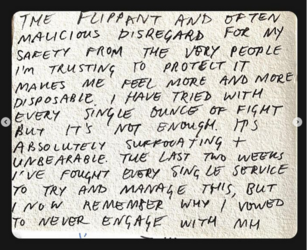 THE FLIPPANT AND OFTEN
MALICIOUS DISREGARD FOR MY
SAFETY FROM THE VERY PEOPLE
I'M TRUSTING TO PROTECT IT
MAKES ME FEEL MORE AND MORE
DISPOSABLE. I HAVE TRIED WITH
EVERY SINGLE OUNCE OF FIGHT
BUT IT'S NOT ENOUGH. IT'S
ABSOLUTELY SUFFOCATING +
UNBEARABLE. THE LAST TWO WEEKS
I'VE FOUGHT EVERY SINGLE SERVICE
TO TRY AND MANAGE THIS, BUT
I NOW REMEMBER WHY I VOWED
TO NEVER ENGAGE WITH MH